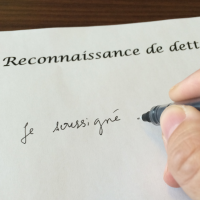 Reconnaissance de dett
Je soussigné